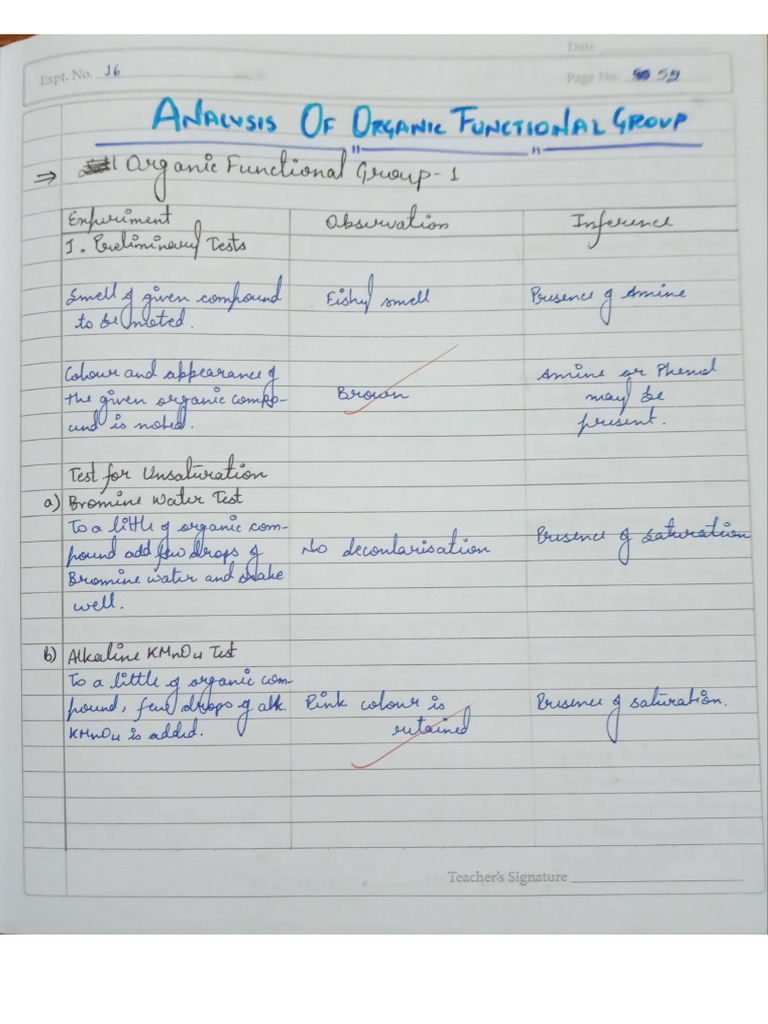 Date
Expt. No. 16
Page No. 59
ANALYSIS OF ORGANIC FUNCTIONAL GROUP
⇒ Organic Functional Group-1
Experiment Observation Inference
I. Preliminary Tests
Smell of given compound Fishy smell Presence of Amine
to be noted.
Colour and appearance of Amine or Phenol
the given organic compo- Brown may be
und is noted. present.
Test for Unsaturation
a) Bromine Water Test
To a little of organic com- Presence of saturation
pound add few drops of No decoularisation
Bromine water and shake
well.
b) Alkaline KMnO4 Test
To a little of organic com
pound, few drops of alk. Pink colour is Presence of saturation.
KMnO4 is added. retained
Teacher's Signature